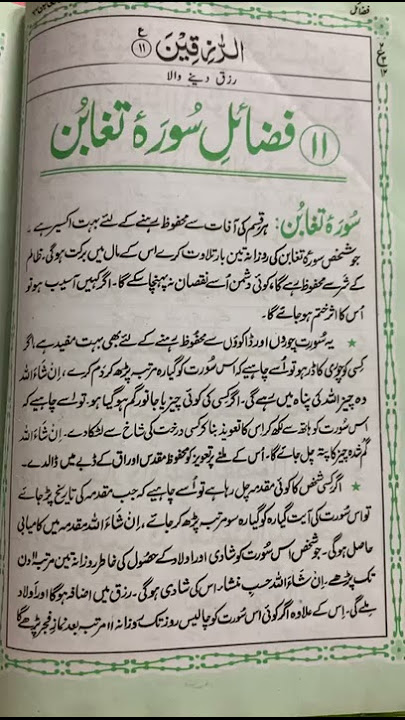 فضائل
الرّٰزِقِیْن ع ۱۱
رزق دینے والا
۱۱ فضائلِ سُورَۂ تغابُن
سُورَۂ تغابُن: ہر قسم کی آفات سے محفوظ رہنے کے لئے بہت اکسیر ہے۔
جو شخص سورۂ تغابن کی روزانہ تین بار تلاوت کرے اس کے مال میں برکت ہوگی۔ ظالم
کے شر سے محفوظ رہے گا، کوئی دشمن اُسے نقصان نہ پہنچا سکے گا۔ اگر کہیں آسیب ہو تو
اُس کا اثر ختم ہو جائے گا۔
★ یہ سُورت چوروں اور ڈاکوؤں سے محفُوظ رہنے کے لئے بھی بہت مفید ہے، اگر
کِسی کو چوری کا ڈر ہو تو اُسے چاہیے کہ اس سُورت کو گیارہ مرتبہ پڑھ کر دم کرے، اِنْ شَآءَ اللّٰہ
وہ چیز اللہ کی پناہ میں رہے گی۔ اگر کسی کی کوئی چیز یا جانور گم ہو گیا ہو۔ تو اُسے چاہیے کہ
اس سُورت کو کاغذ سے لکھ کر اس کا تعویذ بنا کر کسی درخت کی شاخ سے لٹکا دے۔ اِنْ شَآءَ اللّٰہ
گم شدہ چیز کا پتہ چل جائے گا۔ اُس کے ملنے پر تعویز کو محفوظ مقدس اوراق کے ڈبے میں ڈال دے۔
★ اگر کسی شخص کا کوئی مقدمہ چل رہا ہے تو اُسے چاہیے کہ جب مقدمہ کی تاریخ پڑ جائے
تو اس سُورت کی آیت گیارہ کو گیارہ سو مرتبہ پڑھ کر جائے، اِنْ شَآءَ اللّٰہ مقدمہ میں کامیابی
حاصل ہوگی۔ جو شخص اس سُورت کو شادی اور اولاد کے حصُول کی خاطر روزانہ تین مرتبہ ۱۱ دن
تک پڑھے۔ اِنْ شَآءَ اللّٰہ حسبِ منشاء اس کی شادی ہوگی۔ رزق میں اضافہ ہو گا اور اَولاد
ملے گی۔ اِس کے علاوہ اگر کوئی اس سُورت کو چالیس روز تک روزانہ ۱۱ مرتبہ بعد نمازِ فجر پڑھے گا